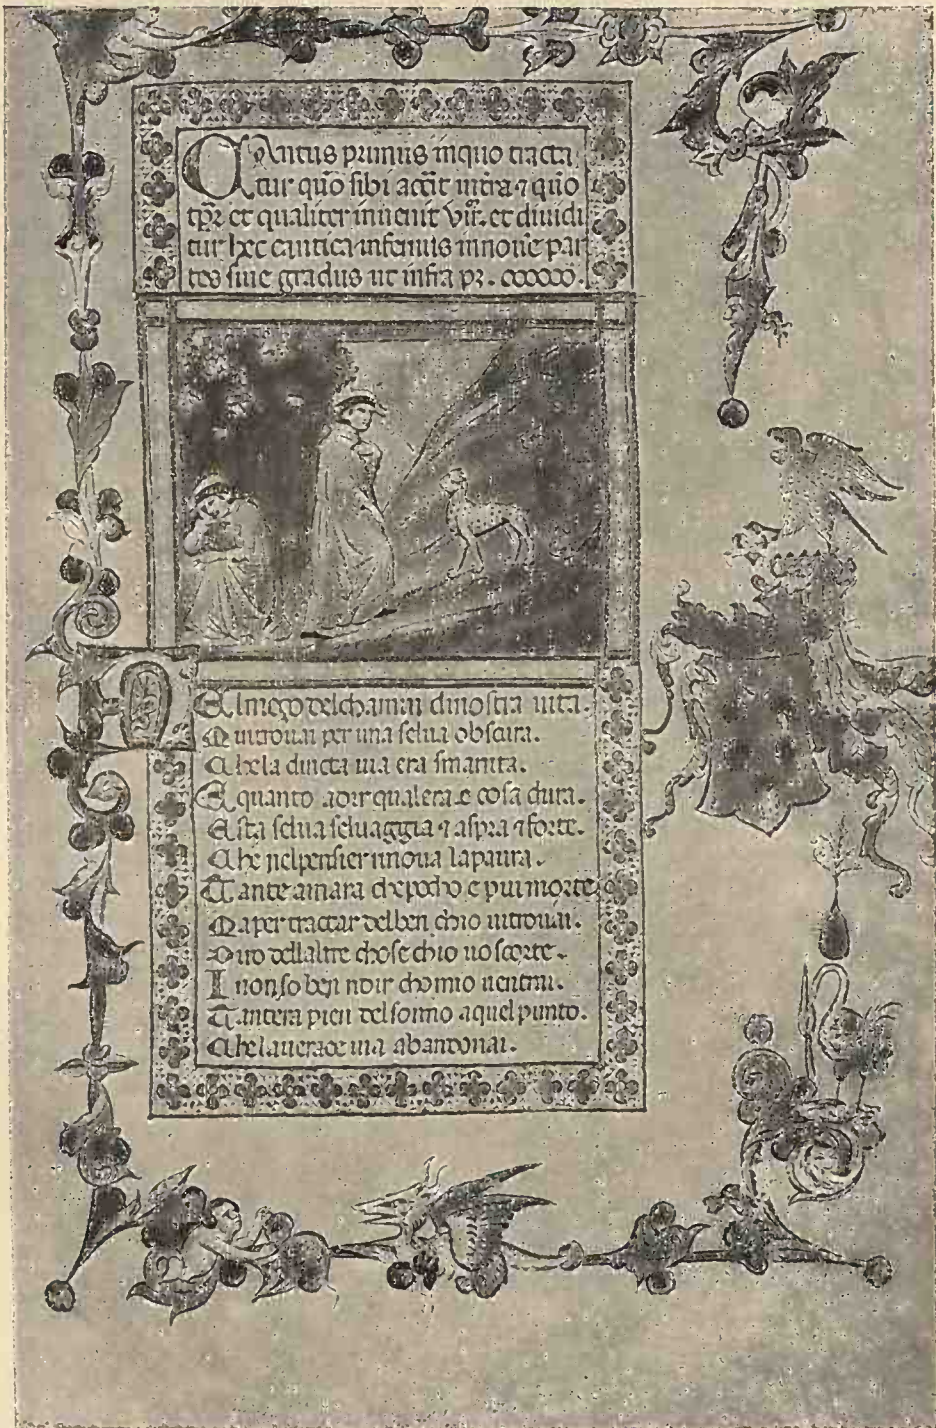 CAntus primus inquo tracta
tur quo sibi accit intra ⁊ quo
tpr̃ et qualiter inuenit vir̃. et diuidi
tur hec cantica infernis innoue par
tes siue gradus ut infra pȝ.
NEl mezo delchamin dinostra uita.
Mi trouai per una selua obscura.
Che la diricta uia era smarita.
E quanto adir qualera e cosa dura.
Esta selua seluaggia ⁊ aspra ⁊ forte.
Che nelpensier rinoua lapaura.
Tante amara che pocho e piu morte
Ma per tractar delben chio ui trouai.
Diro dellaltre chose chio uo scorte.
I non so ben ridir chomio uentrai.
Tantera pien del sonno aquel punto.
Che lauerace uia abandonai.